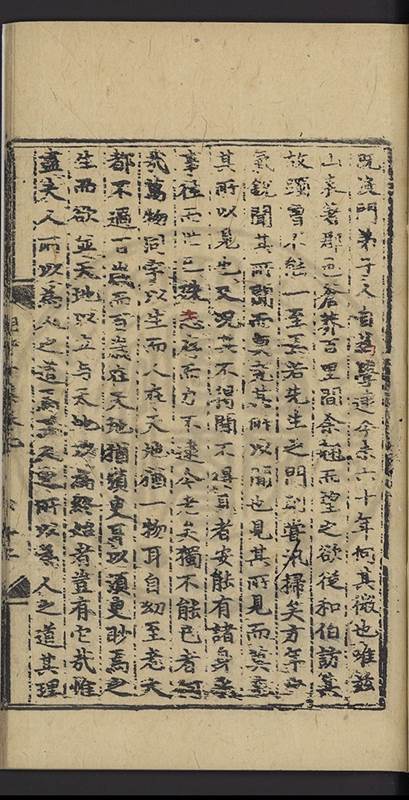 既沒門弟子人自為學迄今未六十年何其微也唯茲
山素著郡邑蒼莽百里間余翹而望之欲從和伯訪其
故躅曾不能一至焉若先生之門則嘗汛掃矣方年少
氣銳聞其所聞而莫究其所以聞也見其所見而莫
其所以見也又況其不得聞不得見者安能有諸身
事往而世已殊志存而力不逮今老矣獨不能已者何
哉萬物同孛以生而人在天地猶一物耳自幼至老大
都不過百歲而百歲在天地猶須臾焉以須臾眇焉之
生而欲並天地以立與天地以為終始者豈有它哉惟
盡夫人所以為人之道焉耳矣所以為人之道其理